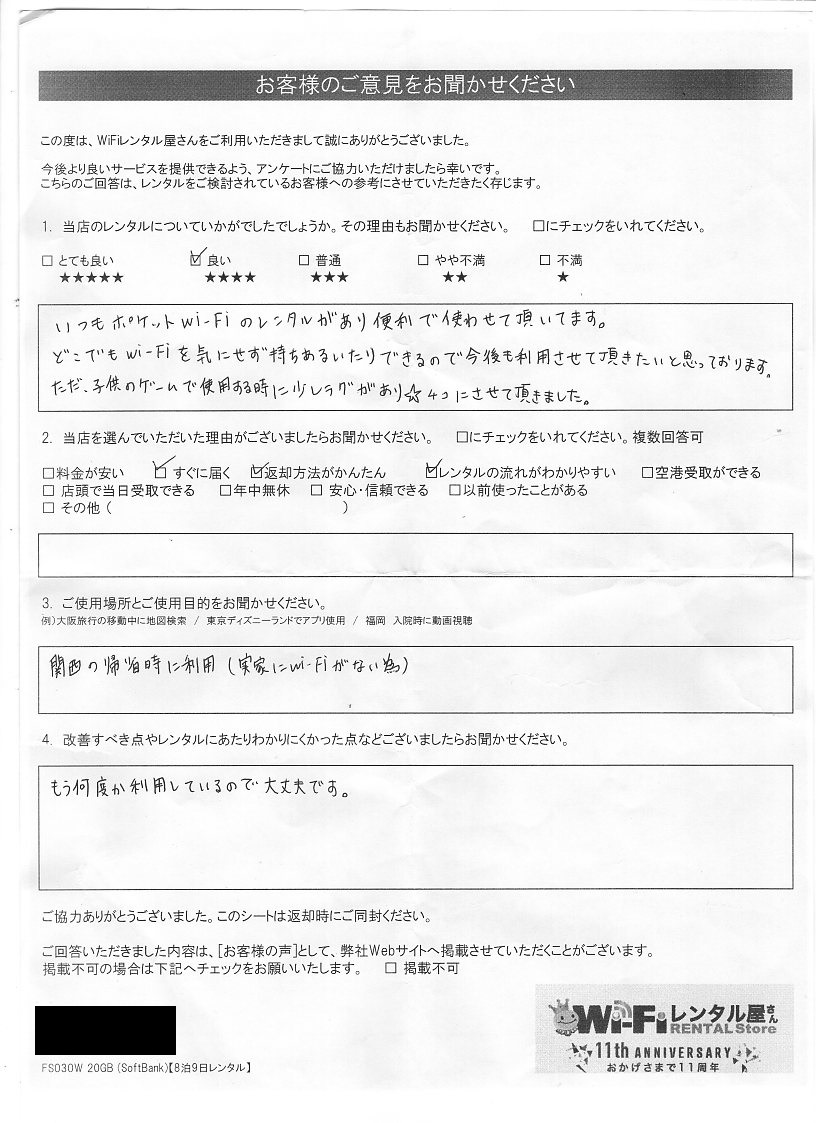 お客様のご意見をお聞かせください
この度は、WiFiレンタル屋さんをご利用いただきまして誠にありがとうございました。
今後より良いサービスを提供できるよう、アンケートにご協力いただけましたら幸いです。
こちらのご回答は、レンタルをご検討されているお客様への参考にさせていただきたく存じます。
1. 当店のレンタルについていかがでしたでしょうか。その理由もお聞かせください。 □にチェックをいれてください。
□ とても良い ☑ 良い □ 普通 □ やや不満 □ 不満
★★★★★ ★★★★ ★★★ ★★ ★
いつもポケットWi-Fiのレンタルがあり便利で使わせて頂いてます。
どこでもWi-Fiを気にせず持ちあるいたりできるので今後も利用させて頂きたいと思っております。
ただ、子供のゲームで使用する時に少しラグがあり☆4コにさせて頂きました。
2. 当店を選んでいただいた理由がございましたらお聞かせください。 □にチェックをいれてください。複数回答可
□料金が安い ☑ すぐに届く ☑返却方法がかんたん ☑レンタルの流れがわかりやすい □空港受取ができる
□ 店頭で当日受取できる □年中無休 □ 安心・信頼できる □以前使ったことがある
□ その他 ( )
3. ご使用場所とご使用目的をお聞かせください。
例)大阪旅行の移動中に地図検索 / 東京ディズニーランドでアプリ使用 / 福岡 入院時に動画視聴
関西の帰省時に利用 (実家にWi-Fiがない為)
4. 改善すべき点やレンタルにあたりわかりにくかった点などございましたらお聞かせください。
もう何度か利用しているので大丈夫です。
ご協力ありがとうございました。このシートは返却時にご同封ください。
ご回答いただきました内容は、[お客様の声]として、弊社Webサイトへ掲載させていただくことがございます。
掲載不可の場合は下記へチェックをお願いいたします。 □ 掲載不可
Wi-Fiレンタル屋さん
RENTAL Store
11th ANNIVERSARY
おかげさまで11周年
FS030W 20GB (SoftBank)【8泊9日レンタル】